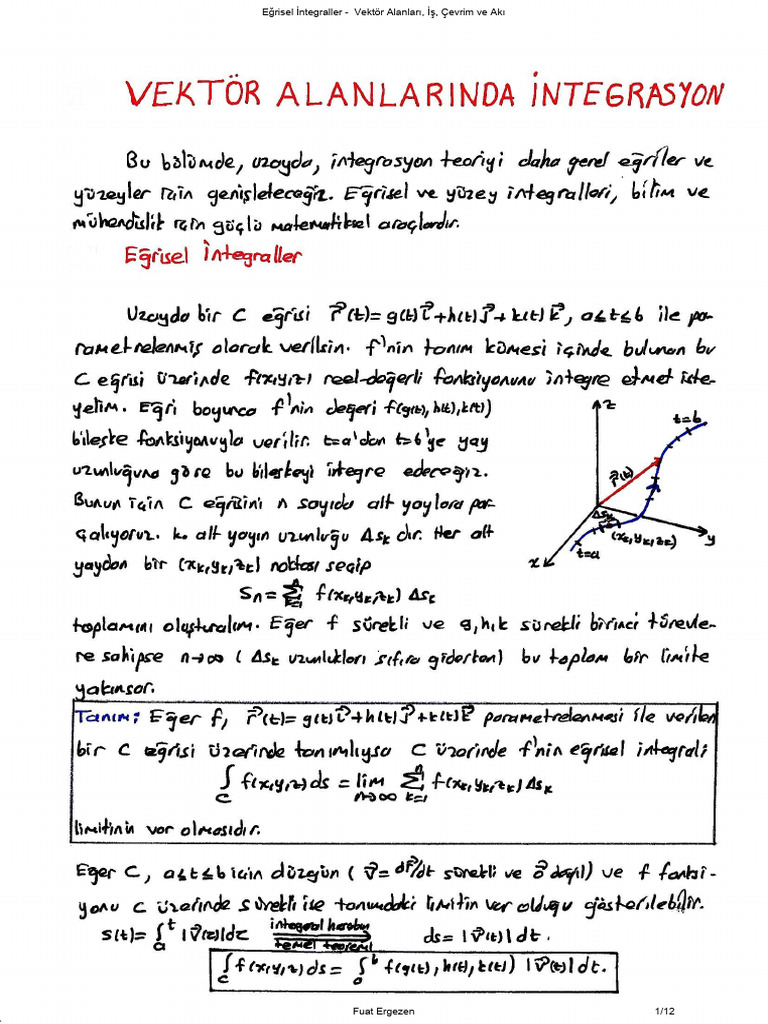 Eğrisel İntegraller - Vektör Alanları, İş, Çevrim ve Akı
VEKTÖR ALANLARINDA İNTEGRASYON
Bu bölümde, uzayda, integrasyon teoriyi daha genel eğriler ve
yüzeyler için genişleteceğiz. Eğrisel ve yüzey integralleri, bilim ve
mühendislik için güçlü matematiksel araçlardır.
Eğrisel İntegraller
Uzayda bir C eğrisi r⃗(t)= g(t)i⃗+h(t)j⃗+k(t)k⃗, a≤t≤b ile pa-
rametrelenmiş olarak verilsin. f'nin tanım kümesi içinde bulunan bu
C eğrisi üzerinde f(x,y,z) reel-değerli fonksiyonunu integre etmek iste-
yelim. Eğri boyunca f'nin değeri f(g(t), h(t), k(t))
bileşke fonksiyonuyla verilir. t=a'dan t=b'ye yay
uzunluğuna göre bu bileşkeyi integre edeceğiz.
Bunun için C eğrisini n sayıda alt yaylara par-
çalıyoruz. k. alt yayın uzunluğu Δsₖ dır. Her alt
yaydan bir (xₖ,yₖ,zₖ) noktası seçip
Sₙ = ∑ₖ₌₁ⁿ f(xₖ,yₖ,zₖ) Δsₖ
z
t=b
r⃗(t)
Δsₖ
(xₖ,yₖ,zₖ)
y
t=a
x
toplamını oluşturalım. Eğer f sürekli ve g,h,k sürekli birinci türevle-
re sahipse n→∞ ( Δsₖ uzunlukları sıfıra giderken) bu toplam bir limite
yakınsar.
Tanım: Eğer f, r⃗(t)= g(t)i⃗+h(t)j⃗+k(t)k⃗ parametrelenmesi ile verilen
bir C eğrisi üzerinde tanımlıysa C üzerinde f'nin eğrisel integrali
∫_C f(x,y,z) ds = lim_{n→∞} ∑ₖ₌₁ⁿ f(xₖ,yₖ,zₖ) Δsₖ
limitinin var olmasıdır.
Eğer C, a≤t≤b için düzgün ( v⃗= dr⃗/dt sürekli ve 0⃗ değil) ve f fonksi-
yonu C üzerinde sürekli ise tanımdaki limitin var olduğu gösterilebilir.
s(t)= ∫ₐᵗ |v⃗(τ)|dτ integral hesabın temel teoremi ds= |v⃗(t)| dt.
∫_C f(x,y,z) ds = ∫ₐᵇ f(g(t), h(t), k(t)) |v⃗(t)| dt.
Fuat Ergezen 1/12